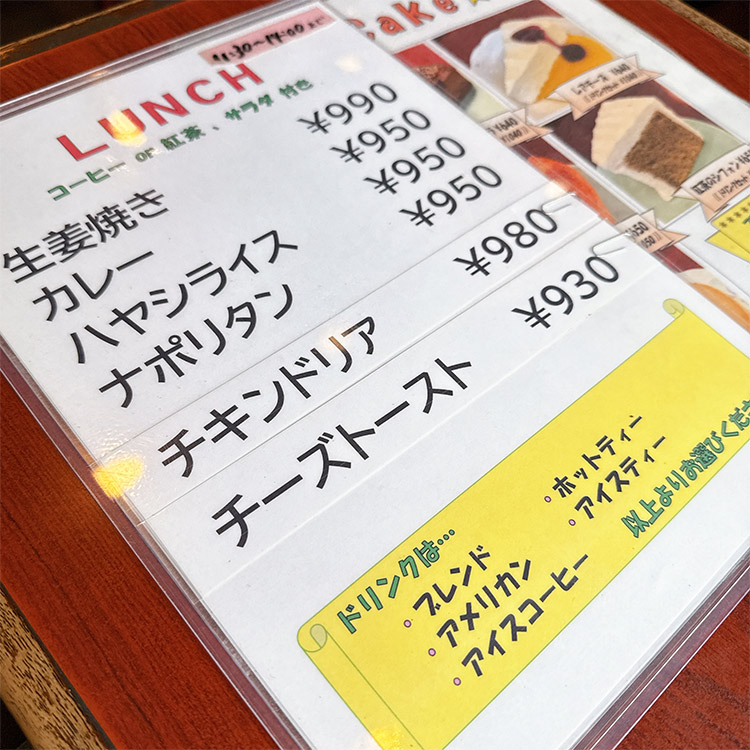 11:30〜14:00まで
LUNCH
コーヒー or 紅茶、サラダ 付き
生姜焼き ¥990
カレー ¥950
ハヤシライス ¥950
ナポリタン ¥950
チキンドリア ¥980
チーズトースト ¥930
ドリンクは…
・ブレンド
・アメリカン
・アイスコーヒー
・ホットティー
・アイスティー
以上よりお選びくださ
Cake
レアチーズ ¥640
紅茶のシフォン